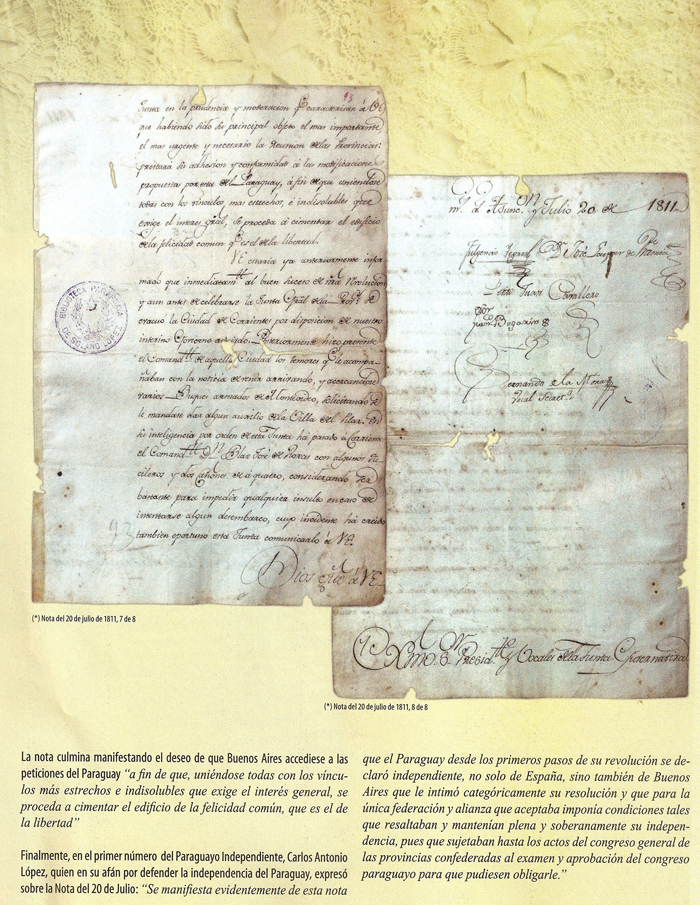 93
Junta en la prudencia y moderacion q.e caracterizan á VE
que habiendo sido su principal objeto el mas importante
el mas urgente y necesario la Reunion de las Provincias:
prestará su adhesion y conformidad á las modificaciones
propuestas por esta del Paraguay, á fin de que uniendose
todas con los vinculos, mas estrechos, é indisolubles que
exige el interes gral, se proceda á cimentar el edificio
de la felicidad comun q.e es el de la libertad.
VE estaria ya anteriormente infor
mado que inmediatam.te al buen suceso de nra Revolucion
y aun antes de celebrarse la Junta Gral de la Prov.a se
evacuo la Ciudad de Corrientes por disposicion de nuestro
interino Govierno
el Comand.te de aquella Ciudad los temores q.e le acompa
ñaban con la noticia de venir arrivando, y acercandose
varios Buques armados de Montevideo, solicitando se
le mandase dar algun auxilio de la Villa del Pilar. En
su inteligencia por orden de esta Junta ha pasado a Corrientes
el Comand.te D.n Blas José de Roxas con algunos fu
cileros y dos cañones de á quatro, considerando ser
bastante para impedir qualquiera insulto en caso de
intentarse algun desembarco, cuyo incidente há creido
tambien oportuno esta Junta comunicarlo á VE.
Dios gue á VE
BIBLIOTECA PARAGUAYA
DE SOLANO LOPEZ
(*) Nota del 20 de julio de 1811, 7 de 8
m.s a.s Asunc.n y Julio 20 de 1811
Fulgencio Yegros D.r José Gaspar de Francia
Pedro Juan Cavallero
Fernando de la Mora
Vocal Secret.o
Exmo S. Presid.te y Vocales de la Junta Gubernativa
(*) Nota del 20 de julio de 1811, 8 de 8
La nota culmina manifestando el deseo de que Buenos Aires accediese a las
peticiones del Paraguay “a fin de que, uniéndose todas con los víncu-
los más estrechos e indisolubles que exige el interés general, se
proceda a cimentar el edificio de la felicidad común, que es el de
la libertad”
Finalmente, en el primer número del Paraguayo Independiente, Carlos Antonio
López, quien en su afán por defender la independencia del Paraguay, expresó
sobre la Nota del 20 de Julio: “Se manifiesta evidentemente de esta nota
que el Paraguay desde los primeros pasos de su revolución se de-
claró independiente, no solo de España, sino también de Buenos
Aires que le intimó categóricamente su resolución y que para la
única federación y alianza que aceptaba imponía condiciones tales
que resaltaban y mantenían plena y soberanamente su indepen-
dencia, pues que sujetaban hasta los actos del congreso general de
las provincias confederadas al examen y aprobación del congreso
paraguayo para que pudiesen obligarle.”